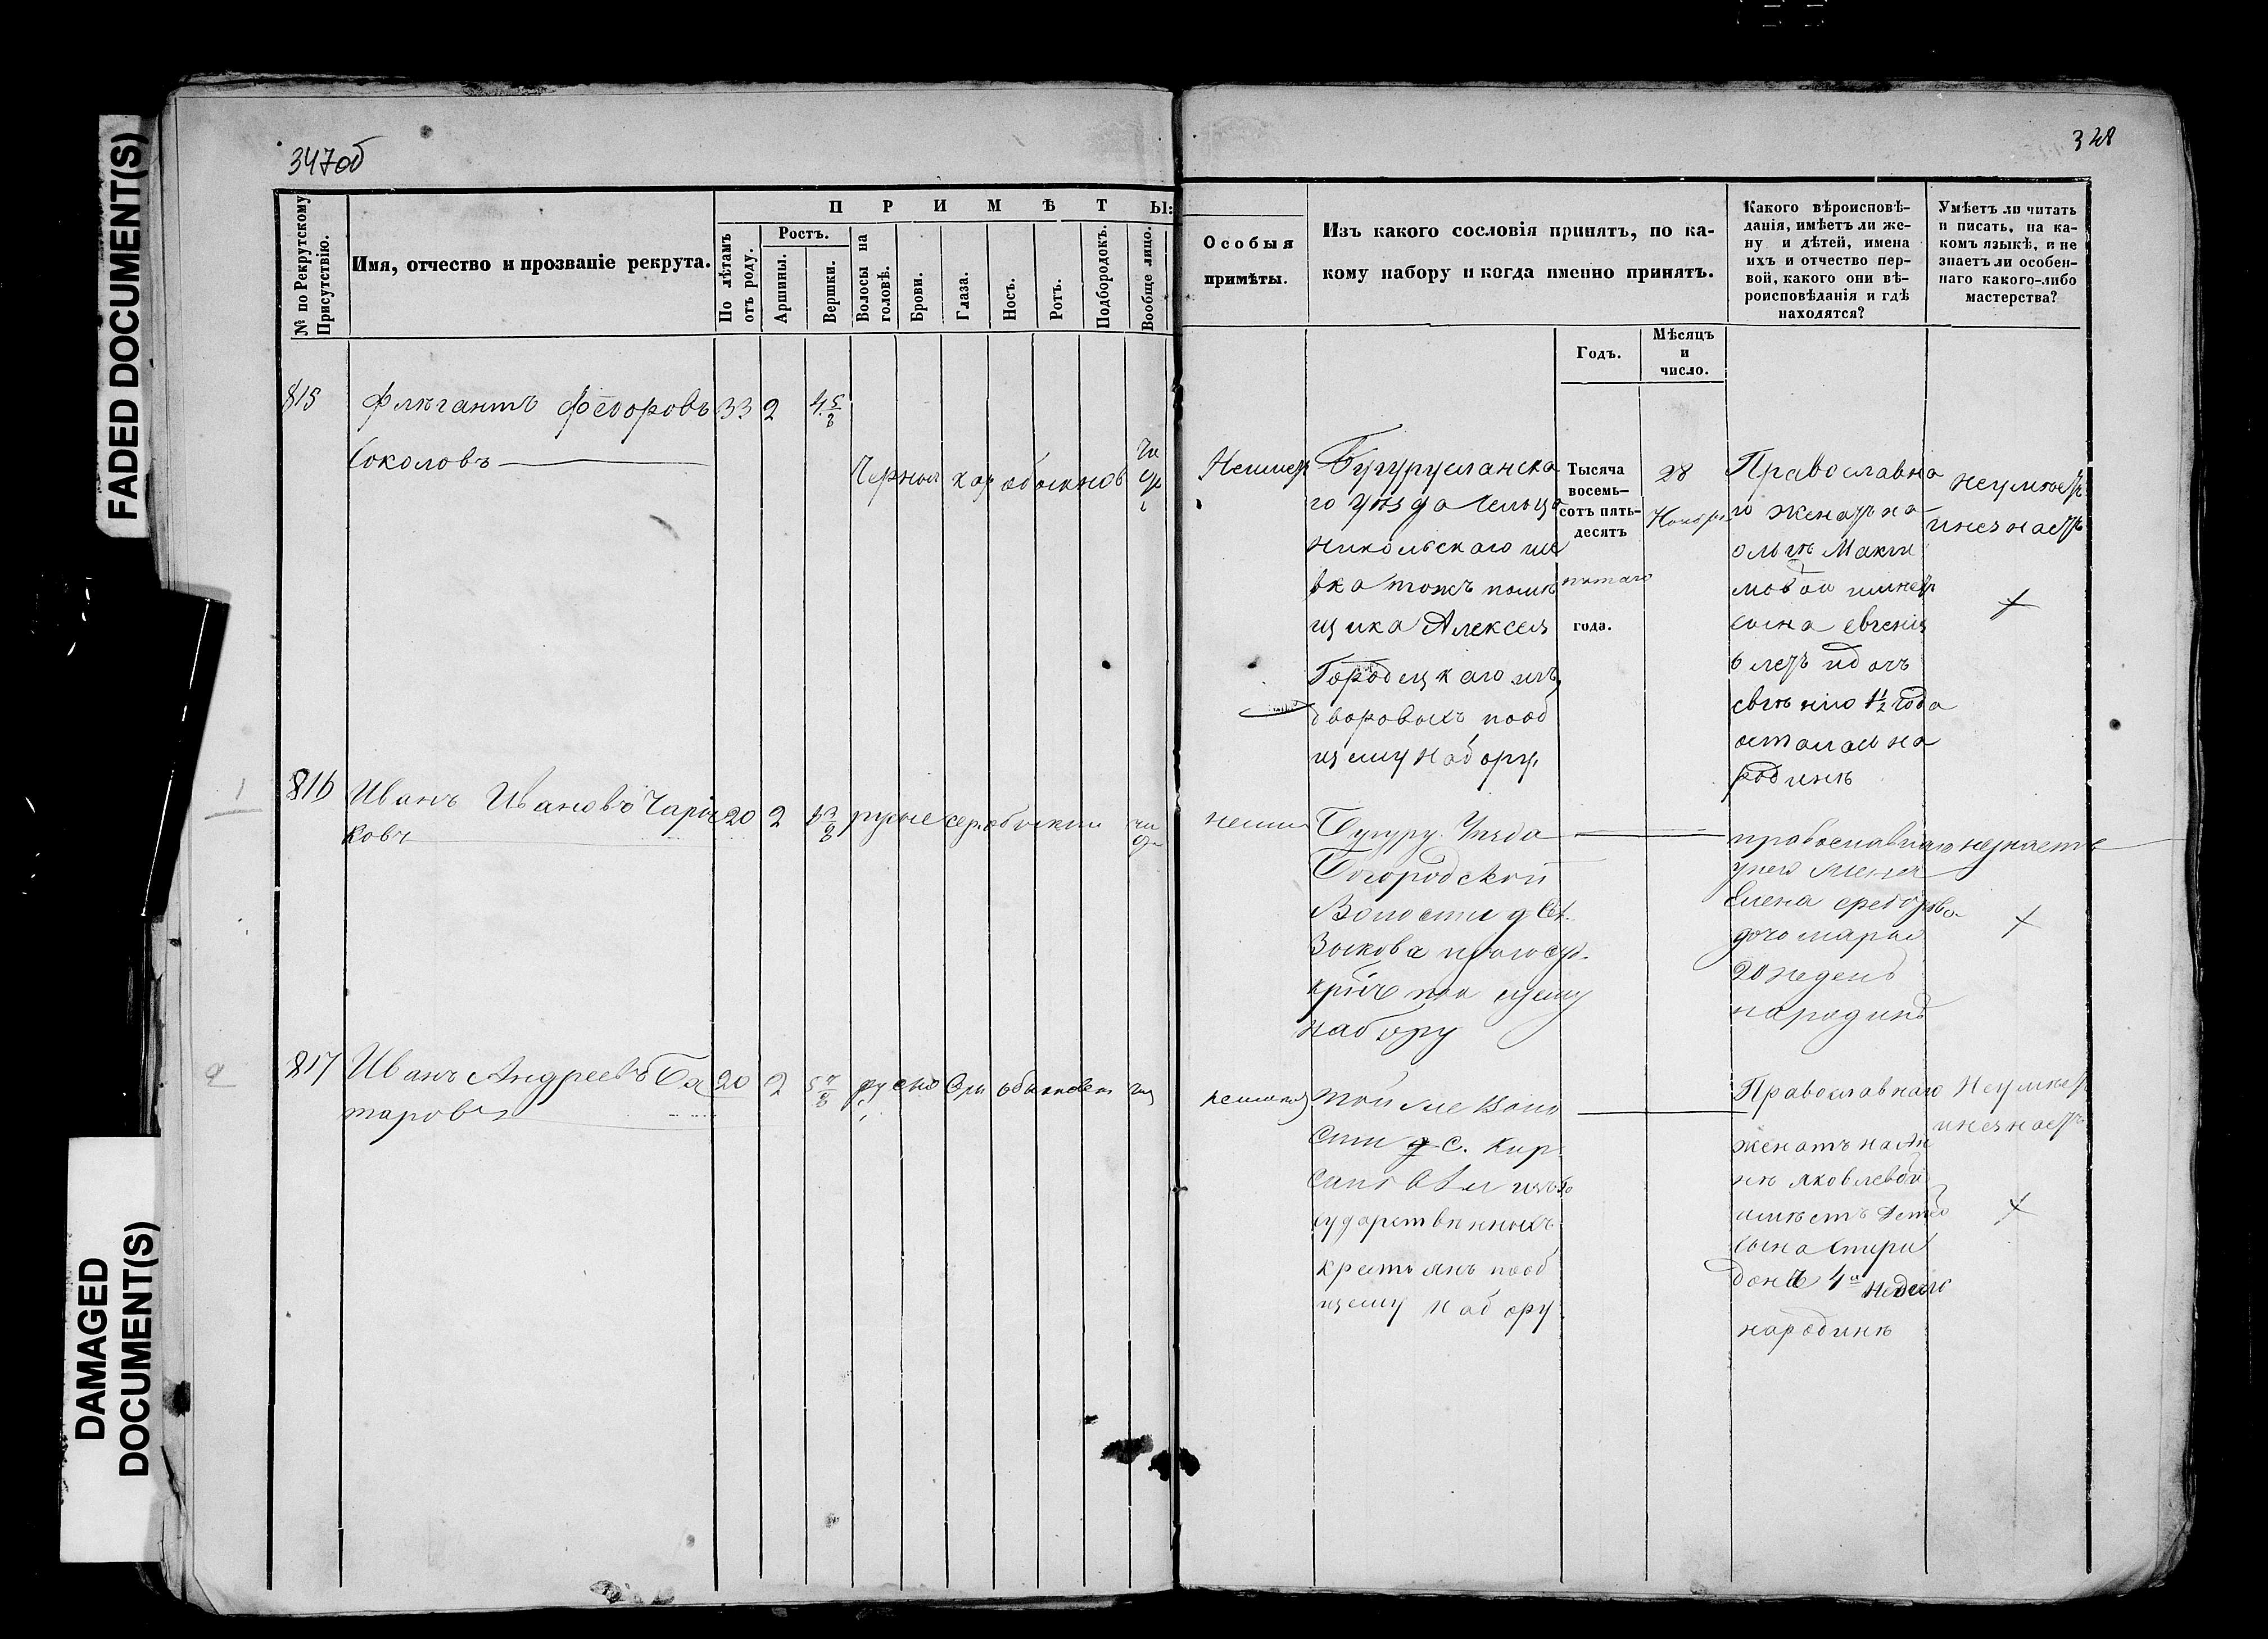 FADED DOCUMENT(S)
DAMAGED
DOCUMENT(S)
347об
348
№ по Рекрутскому
Присутствію.
Имя, отчество и прозваніе рекрута.
ПРИМѢТЫ:
По лѣтамъ
отъ роду.
Ростъ.
Аршины.
Вершки.
Волосы на
головѣ.
Брови.
Глаза.
Носъ.
Ротъ.
Подбородокъ.
Вообще лицо.
Особыя
примѣты.
Изъ какого сословія принятъ, по ка-
кому набору и когда именно принятъ.
Годъ.
Мѣсяцъ
и
число.
Какого вѣроисповѣ-
данія, имѣетъ ли же-
ну и дѣтей, имена
ихъ и отчество пер-
вой, какого они вѣ-
роисповѣданія и гдѣ
находятся?
Умѣетъ ли читать
и писать, на ка-
комъ языкѣ, и не
знаетъ ли особен-
наго какого-либо
мастерства?
815
Флегантъ Федоровъ
Соколовъ
33 2 4 5/8
Черные кар обыкнов
Неимеетъ
Бугурусланска
го уѣзда Сельца
Никольскаго
тожъ помѣ
щика Алексея
Городецкаго изъ
дворовыхъ пооб
щему набору
Тысяча
восемь-
сотъ пять-
десятъ
пятаго
года.
28
Ноября
Православна
го женатъ на
ольгѣ Макси
мовой имѣетъ
сына евгенія
6 летъ идочь
евгѣнію 1 1/2 года
остались на
родинѣ
неумѣетъ
инезнаетъ
+
1
816
Иванъ Ивановъ
ковъ
20 2 3/8 русые сер обыкнов
неиме
Бугуру Уѣзда
Богородской
Волости д
набору
православнаго
у него жена
Елена Федорова
дочь марья
20 недель
народинѣ
незнаетъ
+
2
817
Иванъ Андреевъ Ба
таровъ
20 2 5 русые обыкновен
неимеетъ
той же воло
сти с. Кир
изъ го
сударственныхъ
крестьянъ пооб
щему набору
Православнаго
женатъ на Ан
нѣ яковлевой
имѣетъ детей
сына спири
дона 4 недели
народинѣ
Неумѣетъ
инезнаетъ
+